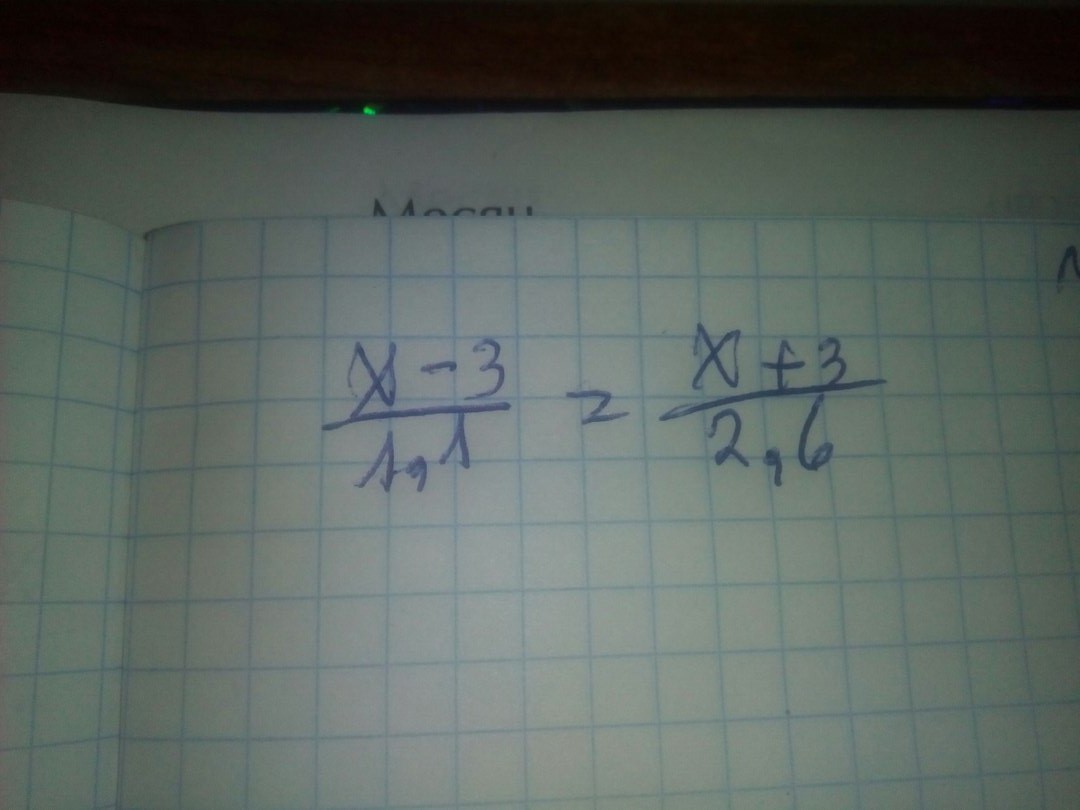 Месяц
x - 3 / 1,1 = x + 3 / 2,6